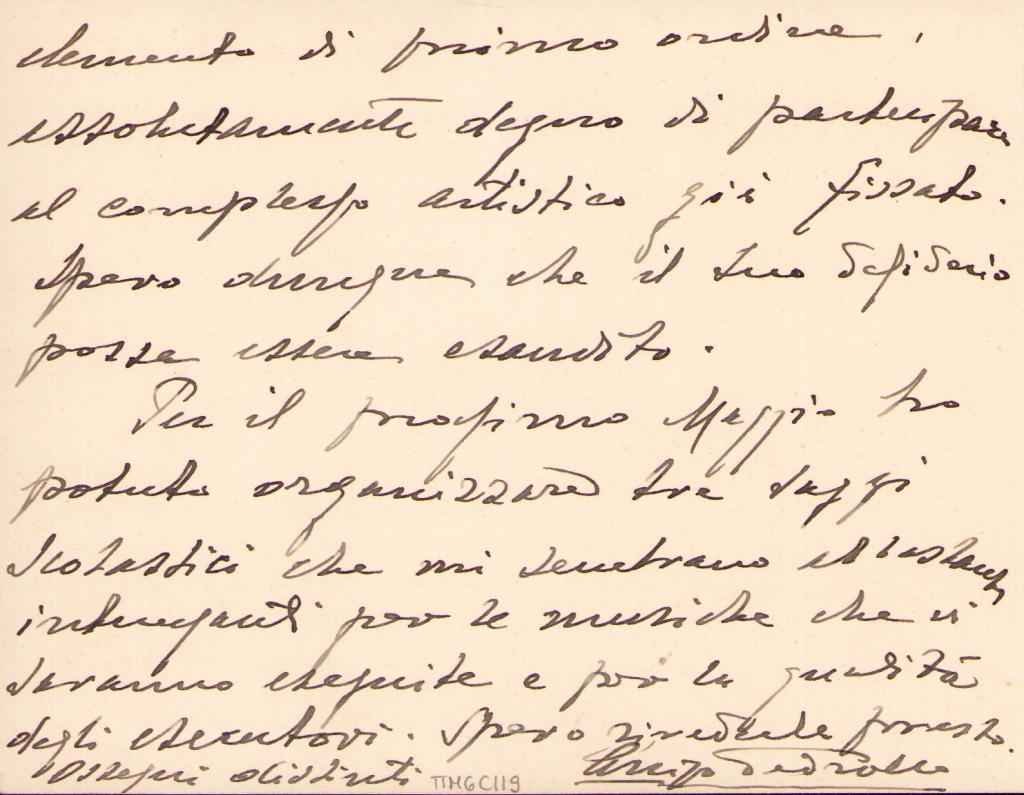 elemento di primo ordine,
assolutamente degno di partecipare
al complesso artistico già fissato.
Spero dunque che il suo desiderio
possa essere esaudito.
Per il prossimo Maggio ho
potuto organizzare tre saggi
scolastici che mi sembrano abbastanza
interessanti per le musiche che vi
saranno eseguite e per la qualità
degli esecutori. Spero rivederla presto.
Ossequi distinti Arrigo Pedrollo
ΠM6C119